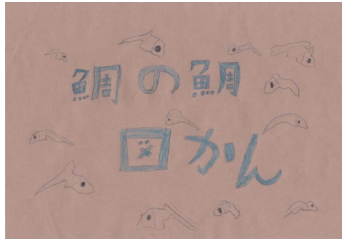 鯛の鯛
図かん